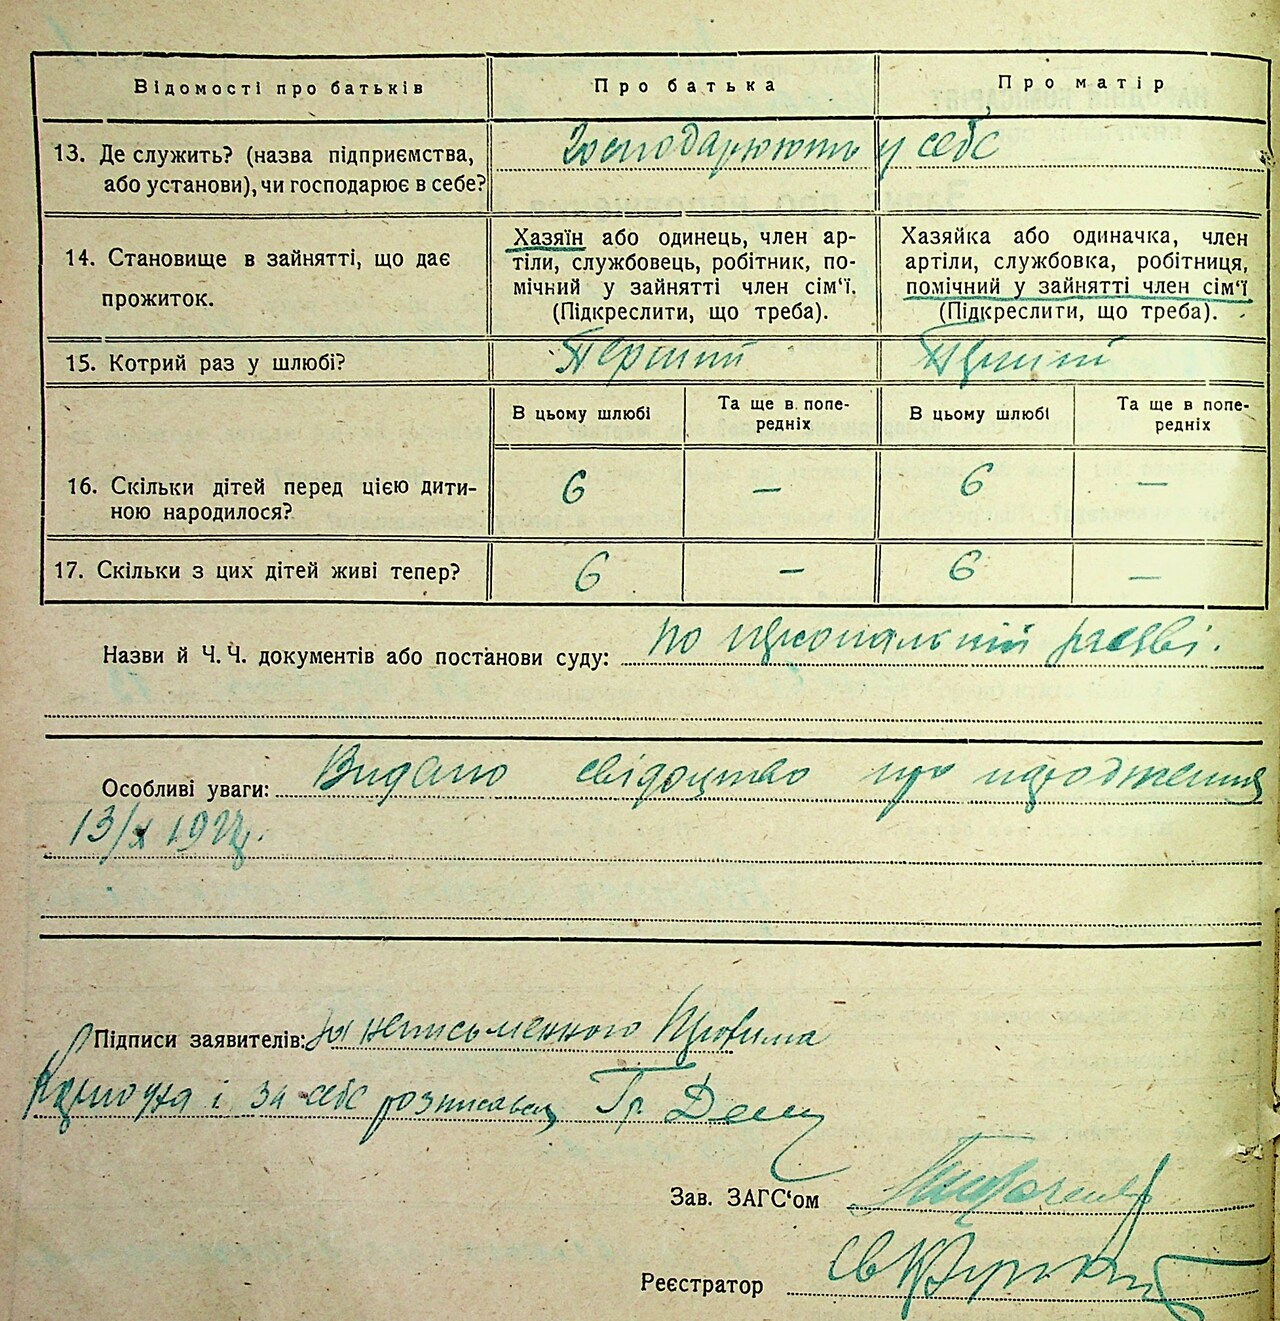 Відомості про батьків Про батька Про матір
13. Де служить? (назва підприємства, або установи), чи господарює в себе? Господарюють у себе
14. Становище в зайнятті, що дає прожиток.
Хазяїн або одинець, член ар-
тіли, службовець, робітник, по-
мічний у зайнятті член сім‘ї.
(Підкреслити, що треба).
Хазяйка або одиначка, член
артіли, службовка, робітниця,
помічний у зайнятті член сім‘ї
(Підкреслити, що треба).
15. Котрий раз у шлюбі? Перший Перший
В цьому шлюбі Та ще в попе-редніх В цьому шлюбі Та ще в попе-редніх
16. Скільки дітей перед цією дити-ною народилося? 6 — 6 —
17. Скільки з цих дітей живі тепер? 6 — 6 —
Назви й Ч. Ч. документів або постанови суду: по персональній заяві.
Особливі уваги: Видано свідоцтво про народження
13/X 192
Підписи заявителів: За неписьменного
і за себе розписався Гр
Зав. ЗАГС‘ом
Реєстратор